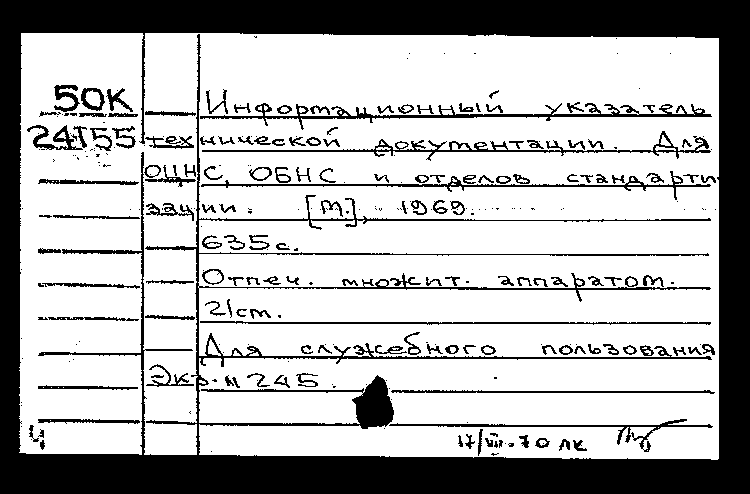 50К Информационный указатель
24I55 технической документации. Для
ОЦНС, ОБНС и отделов стандарти-
зации. [М.], 1969.
635с.
Отпеч. множит. аппаратом.
21см.
Для служебного пользования
Экз. № 245.
Ч 17/VII-70 ЛК